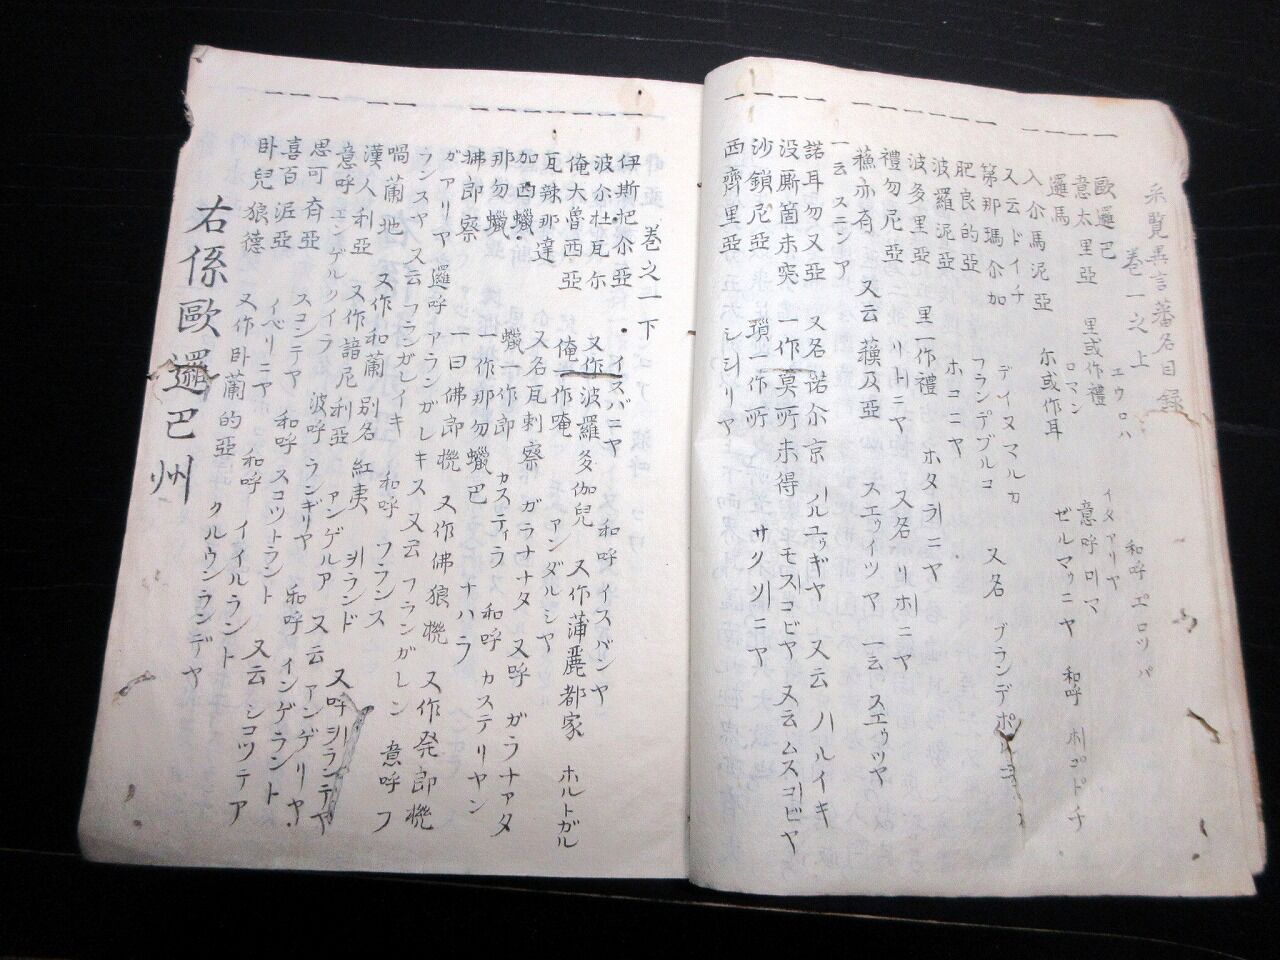 采覧異言蕃名目録
巻一之上
歐邏巴 エウロハ 和呼 エロツパ
意太里亞 里或作禮 イタアリヤ
邏馬 ロマン 意呼 ロマ
入尒馬泥亞 尓或作耳 ゼルマアニヤ 和呼 ホコドイチ
又云 ドイチ
第那瑪尒加 デイヌマルカ
肥良的亞 フランデブルコ 又名 ブランデボルコ
波羅泥亞 ホコニヤ
波多里亞 里一作禮 ホタラニヤ
禮勿尼亞 リトニヤ 又名 リホニヤ
蘓亦有 又云 蘓及亞 スエイツヤ 一云 スエツヤ
一云 スニシア
諾耳勿又亞 又名諾尒京 ノルエギヤ 又云 ノルイキ
没厮箇未突 一作莫所未得 モスコビヤ 又云 ムスコビヤ
沙鎖尼亞 瑣一作所 サクソニヤ
西齊里亞 シシリヤ
巻之一下
伊斯把尒亞 イスパニヤ 和呼 イスパンヤ
波尒杜瓦尓 又作波羅多伽兒 又作蒲麗都家 ホルトガル
俺大魯西亞 俺一作唵 アンダルシヤ
瓦辣那達 又名瓦剌察 ガラナタ 又呼 ガラナアタ
加西蠟 蠟一作郎 カスティラ 和呼 カステリヤン
那勿蠟 一作那勿蠟巴 ナハラ
拂郎察 一曰佛郎機 又作佛狼機 又作発郎機
ガアリヤ 邏呼 アランガレキス 又云 フランガレン 意呼 フ
ランスヤ 又云 フランガレイキ 和呼 フランス
喎蘭地 又作和蘭 別名 紅夷 ヲランド 又呼 ヲランテヤ
漢人利亞 又作諳尼利亞 アンゲルア 又云 アンゲリヤ
意呼 エンゲルタイラ 波呼 ランギリヤ 和呼 インゲラント
思可齊亞 スコンテヤ 和呼 スコツトラント 又云 シコツテア
喜百泥亞 イベリニヤ 和呼 イイルラント
臥兒狼德 又作臥蘭的亞 クルウンランデヤ
右係歐邏巴州